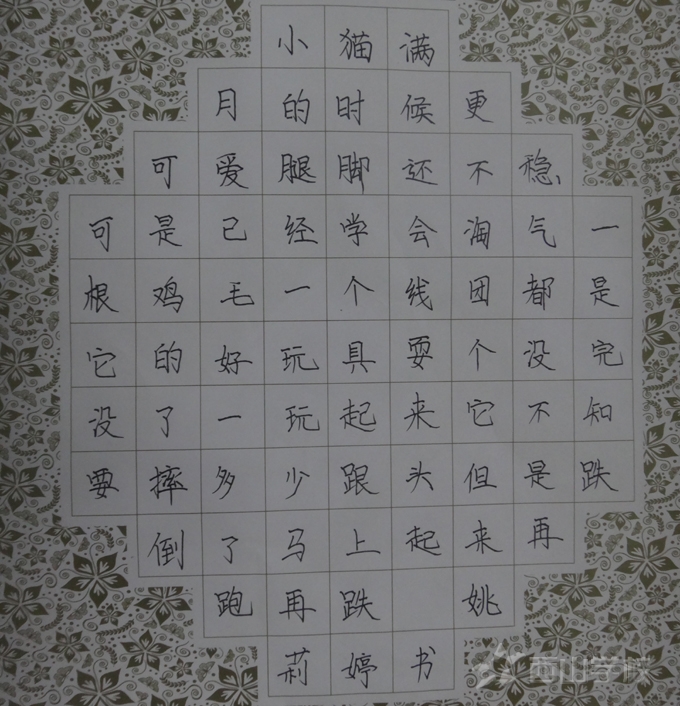 小猫满
月的时候更
可爱腿脚还不稳、
可是已经学会淘气一
根鸡毛一个线团都是
它的好玩具耍个没完
没了一玩起来它不知
要摔多少跟头但是跌
倒了马上起来再
跑再跌 姚
莉婷书
南山学校